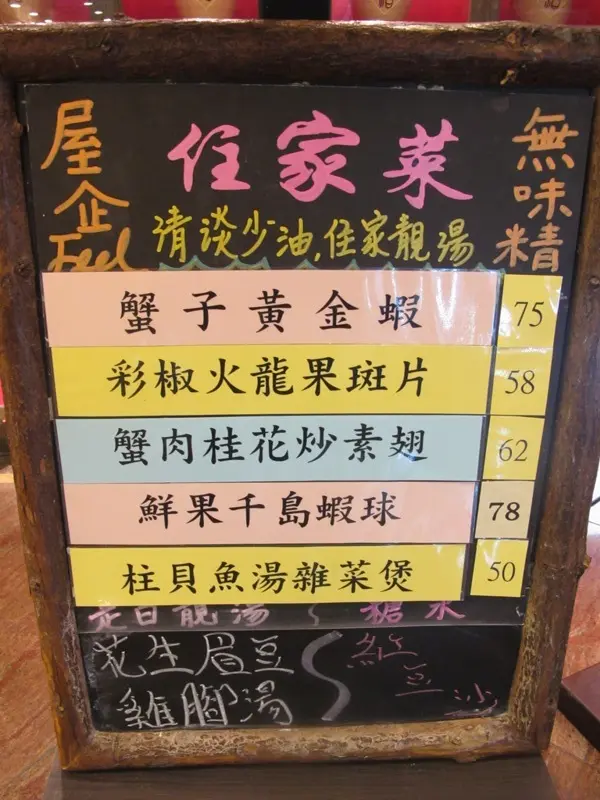 屋企Feel
住家菜
無味精
清淡少油,住家靚湯
蟹子黃金蝦 75
彩椒火龍果斑片 58
蟹肉桂花炒素翅 62
鮮果千島蝦球 78
柱貝魚湯雜菜煲 50
是日靚湯 ~ 糖水
花生眉豆雞腳湯
紅豆沙